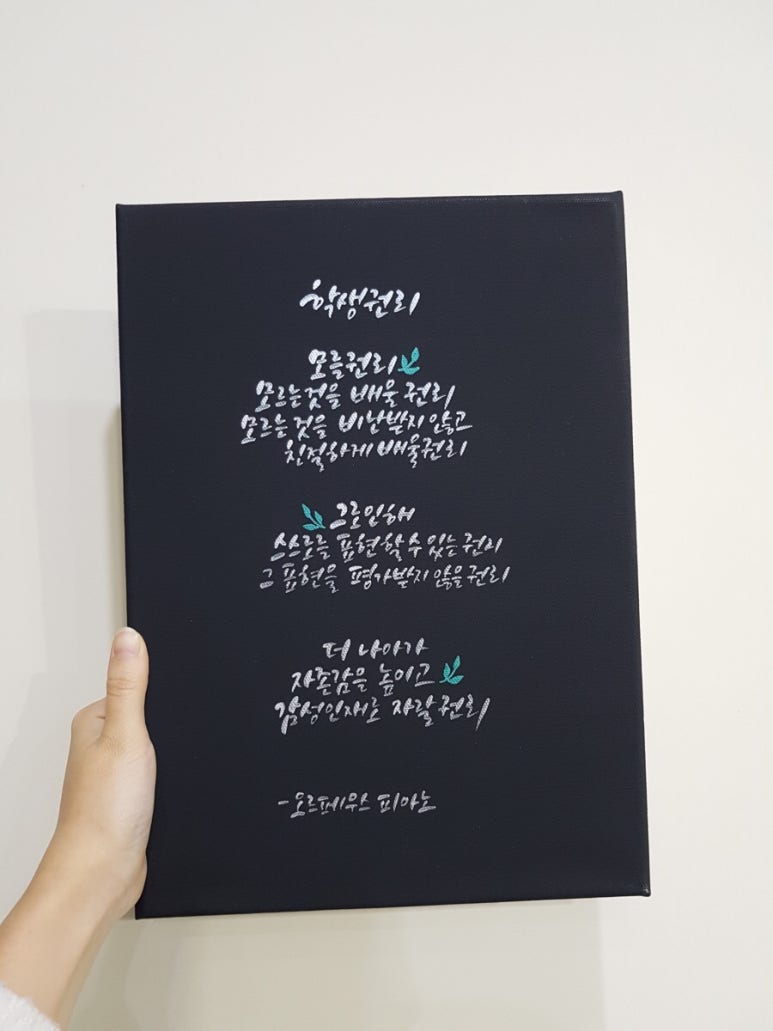 학생권리
모를권리
모르는것을 배울 권리
모르는것을 비난받지 않고
친절하게 배울권리
그로인해
스스로를 표현할 수 있는 권리
그 표현을 평가받지 않을 권리
더 나아가
자존감을 높이고
감성인재로 자랄 권리
-오르페우스 피아노